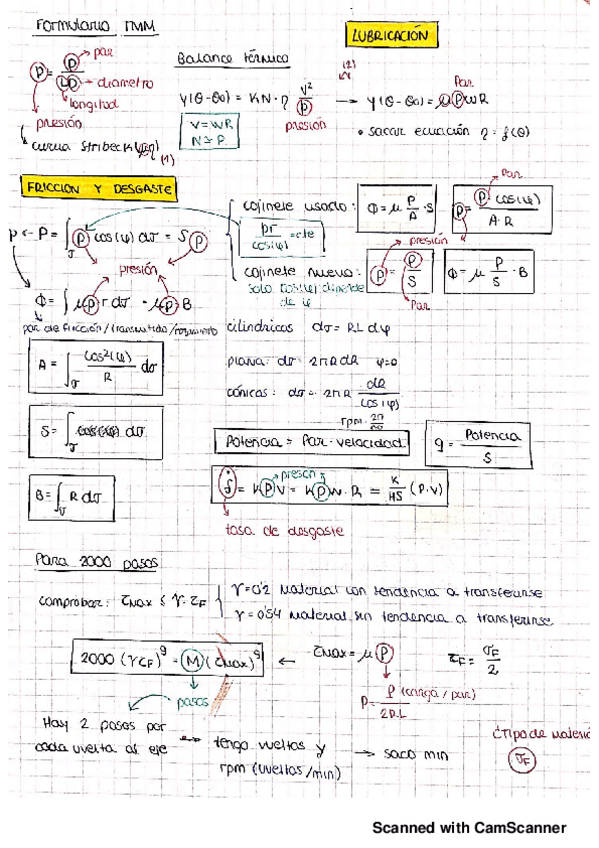 Formulario TMM
LUBRICACIÓN
p = P / LD
par
diametro
longitud
presión
curva Stribeck
(1)
Balance térmico
γ(θ-θ0) = KN·η V² / p
presión
V=WR
N≅P
(2)
γ(θ-θ0) = μPWR
Par
• sacar ecuación η = f(θ)
FRICCION Y DESGASTE
P = ∫σ p cos(φ) dσ = S p
presión
Φ = ∫ μ p r dσ = μ p B
par de fricción/transmitido/rozamiento
A = ∫σ cos²(φ) / R dσ
S = ∫σ cos(φ) dσ
B = ∫σ R dσ
cojinete usado:
Φ = μ P/A · S
p = P cos(φ) / A·R
Par
pr / cos(φ) = cte
presión
cojinete nuevo:
solo cos(φ) depende de φ
p = P / S
Par
Φ = μ P/S · B
cilindricas dσ = RL dφ
plana: dσ = 2πR dR φ=0
cónicas: dσ = 2πR dR / cos(φ)
rpm · 2π/60
Potencia = Par · velocidad
q = Potencia / S
δ = K p V = K p W·R = K/HS (P·V)
presión
tasa de desgaste
Para 2000 pasos
comprobar: τmax ≤ γ·τF
γ=0'2 Material con tendencia a transferirse
γ=0'54 material sin tendencia a transferirse
2000 (γτF)⁹ = M (τmax)⁹
← τmax = μ p
τF = σF / 2
pasos
p = P (carga/par) / 2RL
Hay 2 pasos por
cada vuelta al eje
tengo vueltas y
rpm (vueltas/min)
→ saco min
¿Tipo de
σF
Scanned with CamScanner